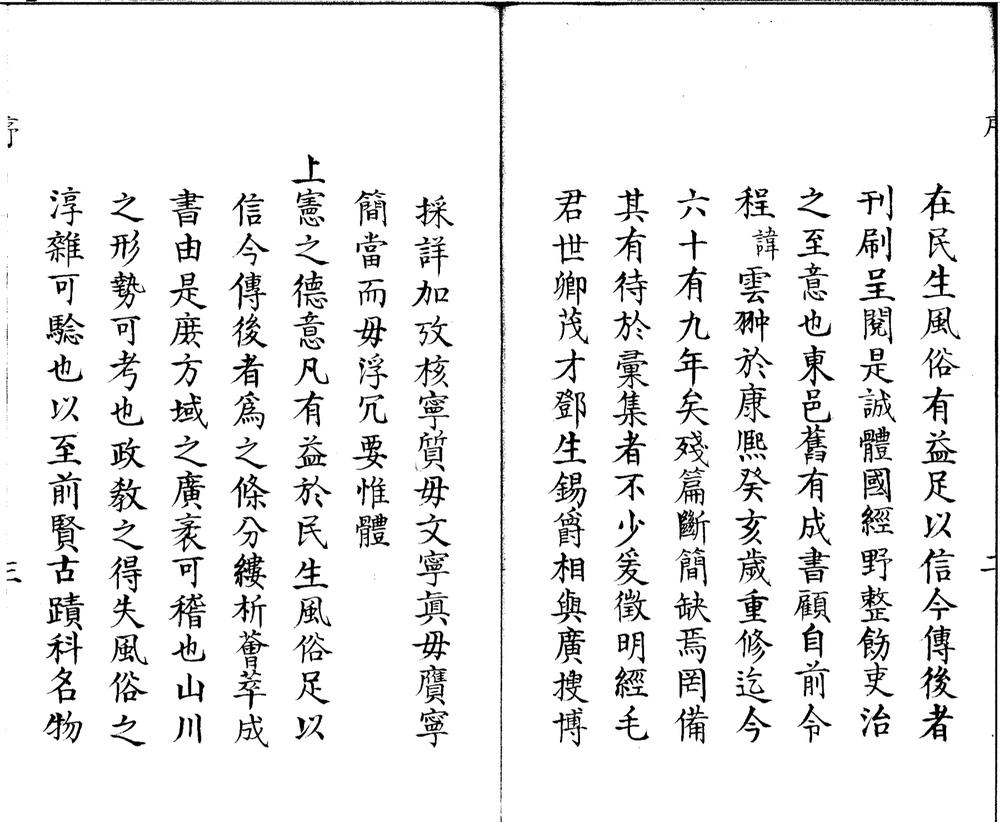 在民生風俗有益足以信今傳後者
刊刷呈閱是誠體國經野整飭吏治
之至意也東邑舊有成書顧自前令
程諱雲翀於康熈癸亥歲重修迄今
六十有九年矣殘篇斷簡缺焉罔備
其有待於彙集者不少爰徵明經毛
君世卿茂才鄧生錫爵相與廣搜博
採詳加攷核寧質毋文寧眞毋贋寧
簡當而毋浮冗要惟體
上憲之德意凡有益於民生風俗足以
信今傳後者爲之條分縷析薈萃成
書由是庶方域之廣袤可稽也山川
之形勢可考也政敎之得失風俗之
淳雜可驗也以至前賢古蹟科名物
序
三
二